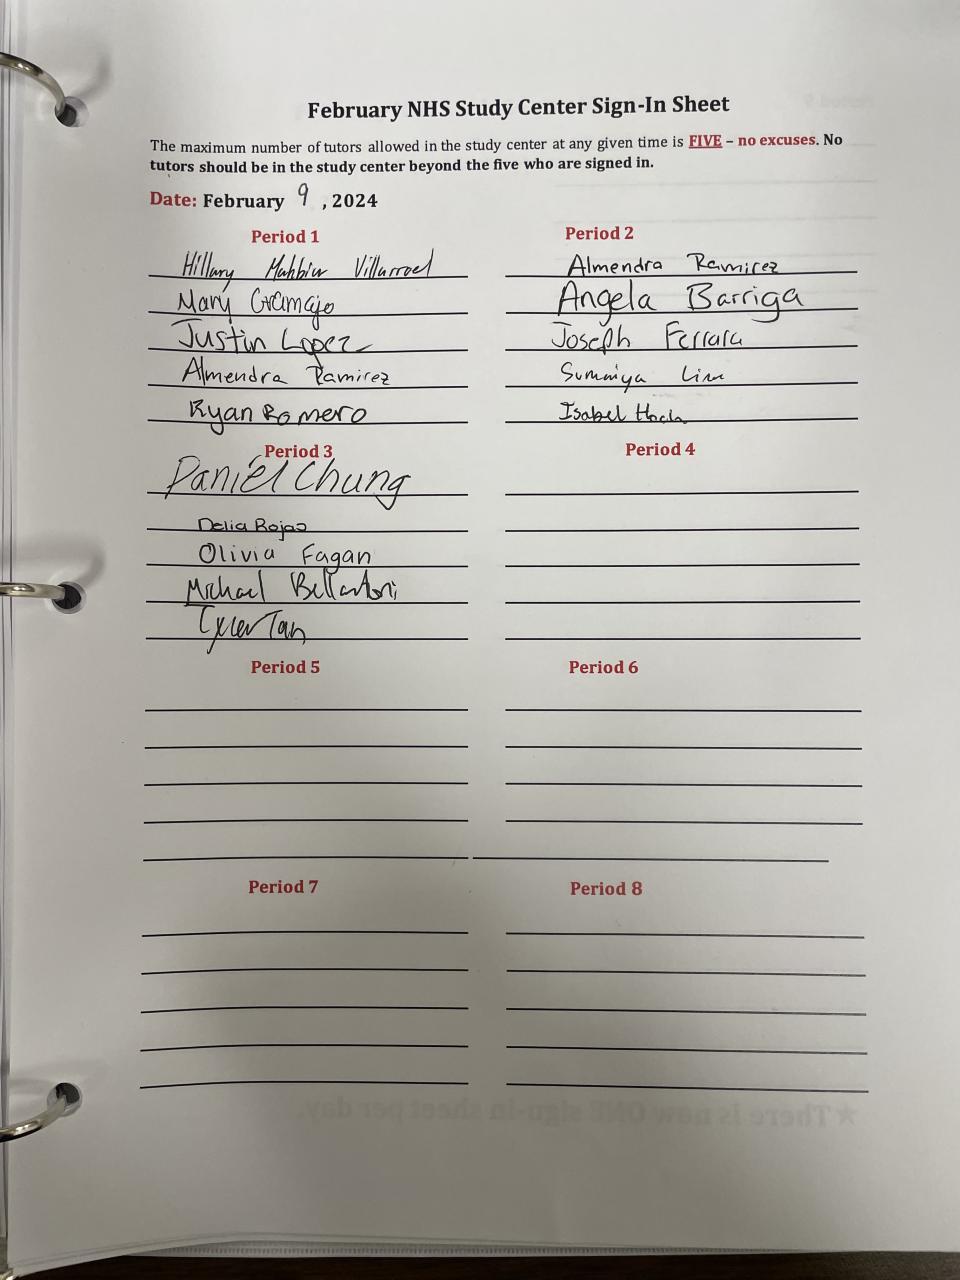 February NHS Study Center Sign-In Sheet
The maximum number of tutors allowed in the study center at any given time is FIVE – no excuses. No
tutors should be in the study center beyond the five who are signed in.
Date: February 9, 2024
Period 1
Hillary Villarroel
Mary Gramajo
Justin Lopez
Almendra Ramirez
Ryan Romero
Period 2
Almendra Ramirez
Angela Barriga
Joseph Ferrara
Summiya
Isabel
Period 3
Daniel Chung
Delia Rojas
Olivia Fagan
Michael Bellantoni
Tyler Tan
Period 4
Period 5
Period 6
Period 7
Period 8
★ There is now ONE sign-in sheet per day.